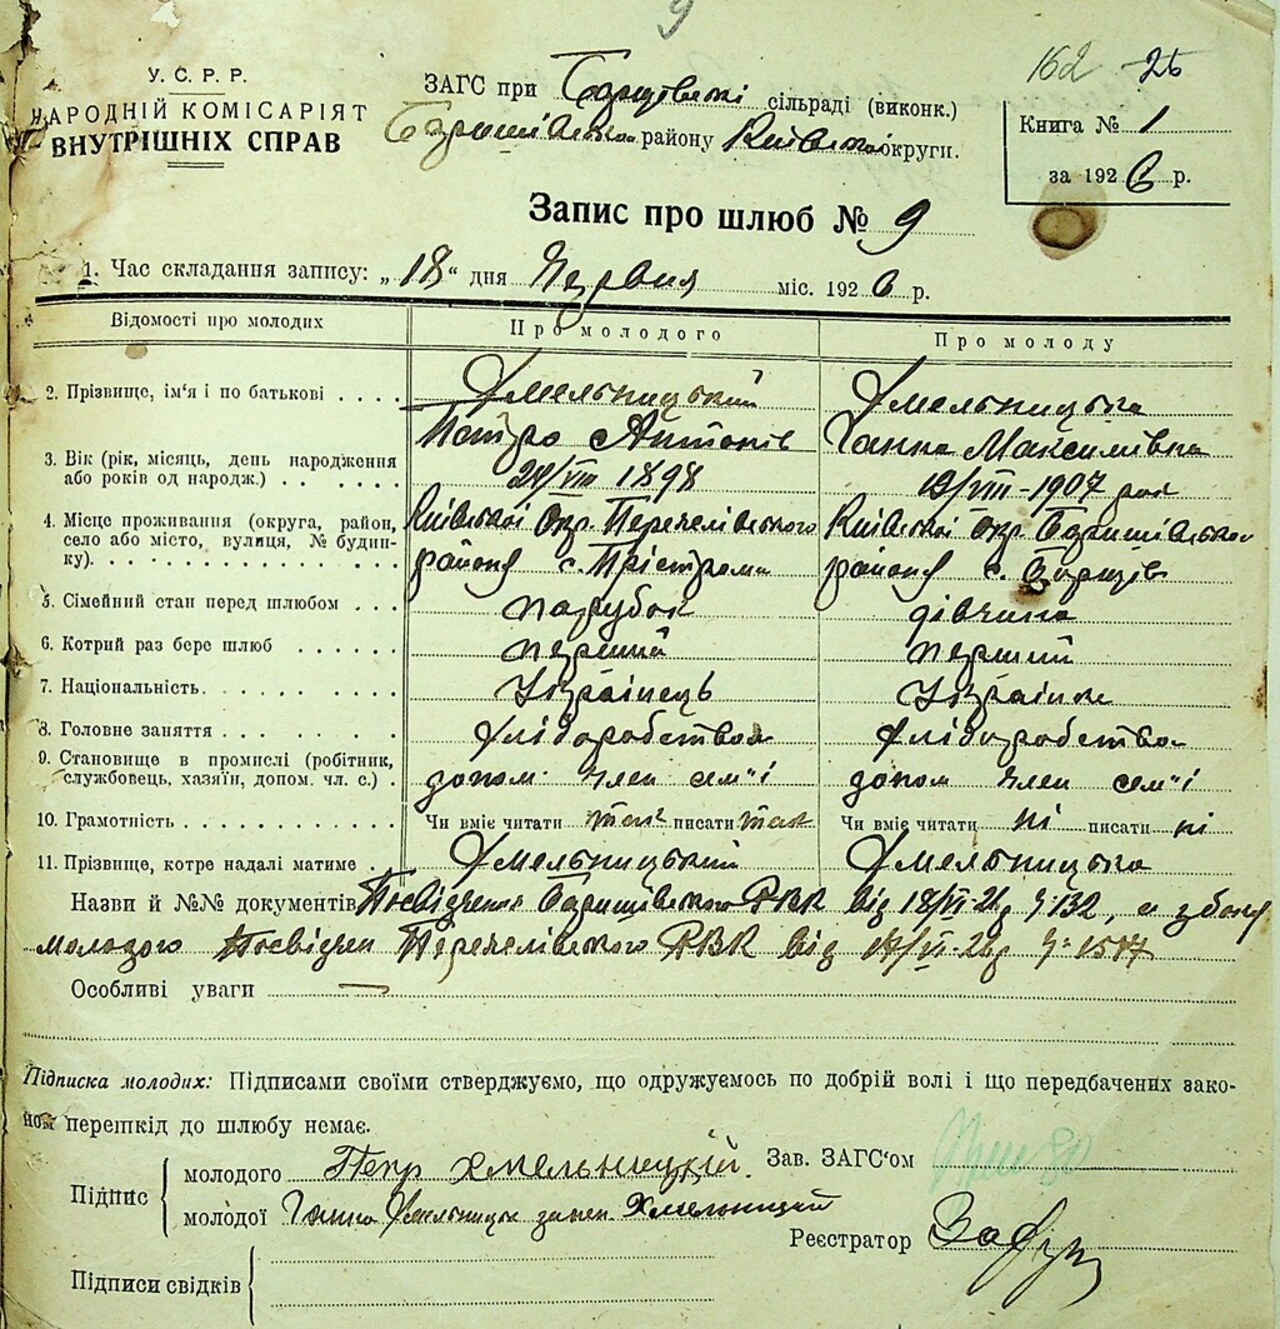 9
162 26
У. С. Р. Р.
НАРОДНІЙ КОМІСАРІЯТ
ВНУТРІШНІХ СПРАВ
ЗАГС при Борщівські сільраді (виконк.)
Баришівського району Київської округи.
Книга № 1
за 1926 р.
Запис про шлюб № 9
1. Час складання запису: „18“ дня Червня міс. 1926 р.
Відомості про молодих Про молодого Про молоду
2. Прізвище, ім'я і по батькові . . . . Хмельницький Хмельницька
Петро Антонів Ганна Максимівна
3. Вік (рік, місяць, день народження
або років од народж.) . . . . . . 24/VIII 1898 19/VIII-1907 рок
4. Місце проживання (округа, район,
село або місто, вулиця, № будин-
ку). . . . . . . . . . . . . . . .
Київської Окр. Переяслівського Київської Окр. Баришівського
району с. Пристроми району с. Борщів
5. Сімейний стан перед шлюбом . . . парубок дівчина
6. Котрий раз бере шлюб . . . . . . перший перший
7. Національність. . . . . . . . . . Українець Українка
8. Головне заняття . . . . . . . . . Хліборобство Хліборобство
9. Становище в промислі (робітник,
службовець, хазяїн, допом. чл. с.) . допом. член сем"ї допом член сем"ї
10. Грамотність . . . . . . . . . . . . Чи вміє читати так писати так Чи вміє читати ні писати ні
11. Прізвище, котре надалі матиме . Хмельницький Хмельницька
Назви й №№ документів Посвідчення Баришівського РВК від 18/VI-26 р ч 132, а з боку
молодого Посвідчен Переяслівського РВК від 17/VI-26 р ч: 1517
Особливі уваги —
Підписка молодих: Підписами своїми стверджуємо, що одружуємось по добрій волі і що передбачених зако-
ном перешкід до шлюбу немає.
Підпис
молодого Петр Хмельницкій.
молодої Ганна Хмельницьк Хмельницкий
Зав. ЗАГС'ом
Реєстратор
Підписи свідків